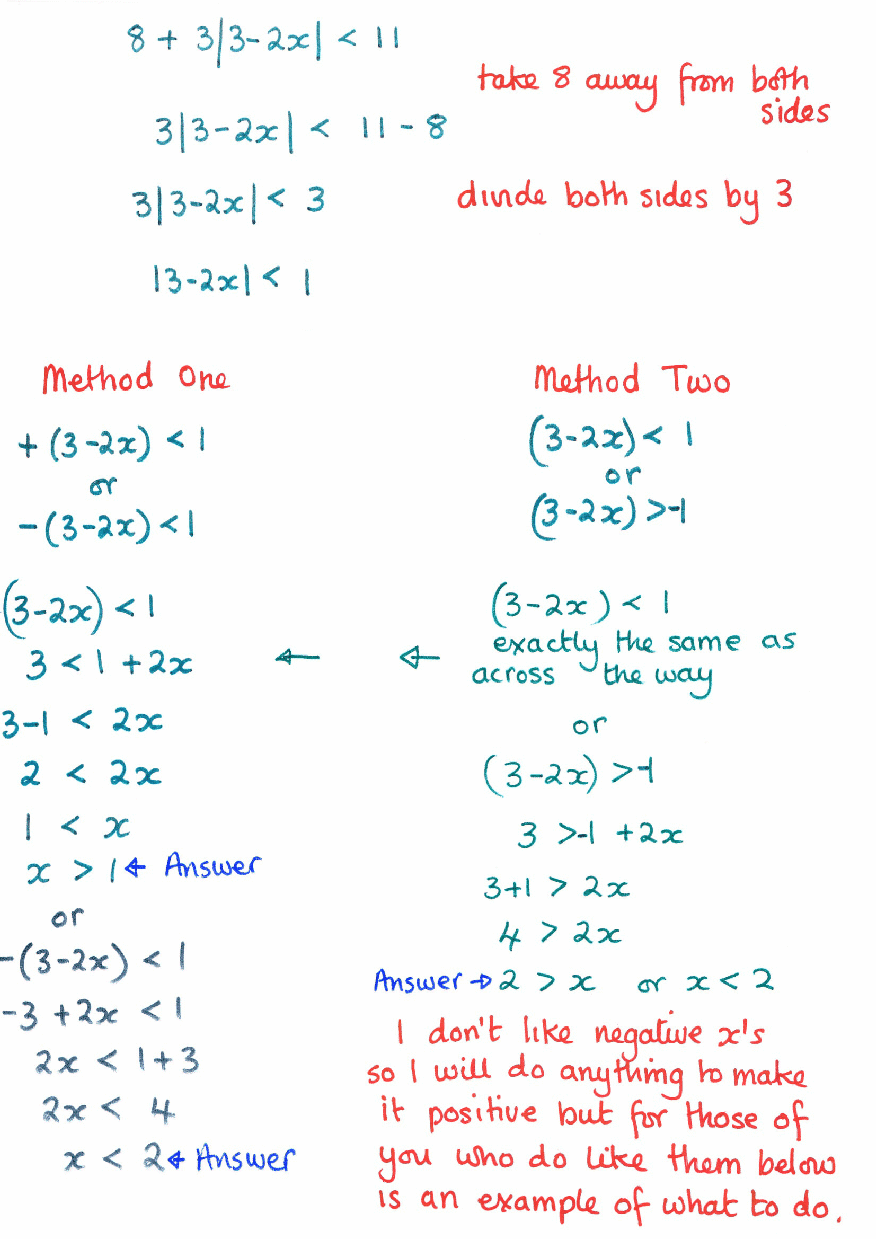 8 + 3|3-2x| < 11
take 8 away from both
sides
3|3-2x| < 11 - 8
3|3-2x| < 3
divide both sides by 3
|3-2x| < 1
Method One
+ (3-2x) < 1
or
-(3-2x) < 1
(3-2x) < 1
3 < 1 + 2x
3-1 < 2x
2 < 2x
1 < x
x > 1 ← Answer
or
-(3-2x) < 1
-3 + 2x < 1
2x < 1+3
2x < 4
x < 2 ← Answer
Method Two
(3-2x) < 1
or
(3-2x) >-1
(3-2x) < 1
← ← exactly the same as
across the way
or
(3-2x) >-1
3 >-1 +2x
3+1 > 2x
4 > 2x
Answer → 2 > x or x < 2
I don't like negative x's
so I will do anything to make
it positive but for those of
you who do like them below
is an example of what to do.